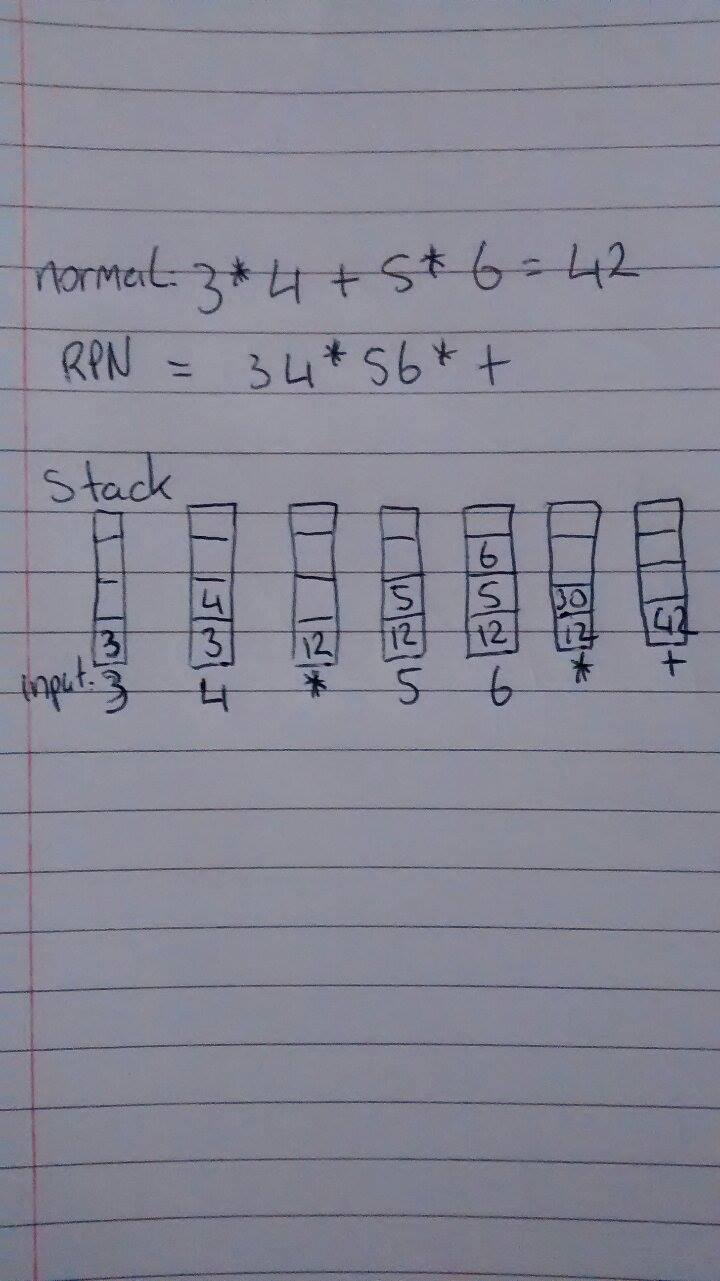 normal: 3 * 4 + 5 * 6 = 42
RPN = 34 * 56 * +
Stack
6
4 5 5 30
3 3 12 12 12 12 42
input: 3 4 * 5 6 * +